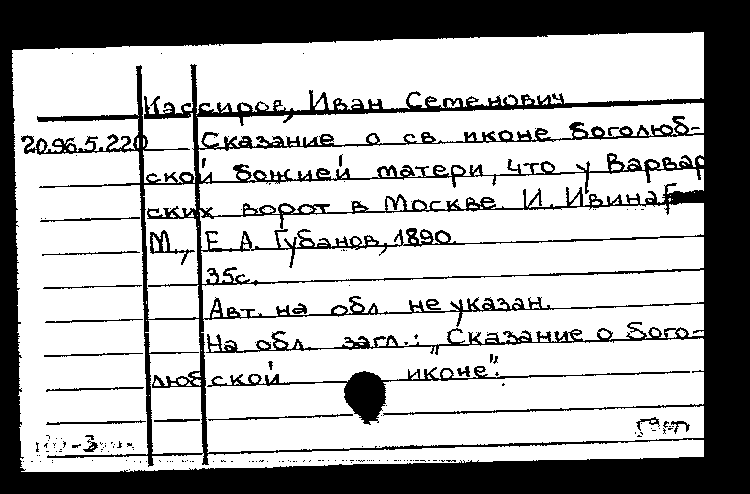 Кассиров, Иван Семенович
20.96.5.220 Сказание о св. иконе Боголюб-
ской божией матери, что у Варвар
ских ворот в Москве. И. Ивина
М., Е. А. Губанов, 1890.
35с.
Авт. на обл. не указан.
На обл. загл.: „Сказание о Бого-
любской иконе".